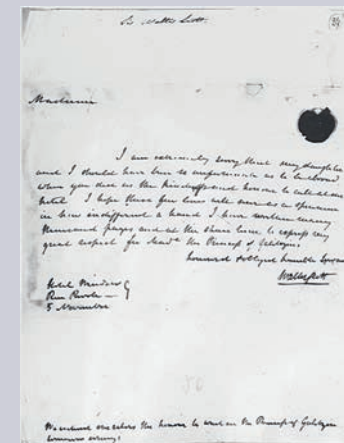 Sir Walter Scott.
Madame
I am extremely sorry that my daughter
and I should have been so unfortunate as to be abroad
when you did us the and honour to call at our
hotel I hope these few lines will as a specimen
in how indifferent a hand I have written many
thousand pages and at the same time to express my
great respect for the Princess Galitzin
honoured & obliged humble Servant
Walter Scott
Hotel Windsor
Rue Rivoli
5 Novembre
We ourselves the honour to wait on the Princess Galitzin
tomorrow evening